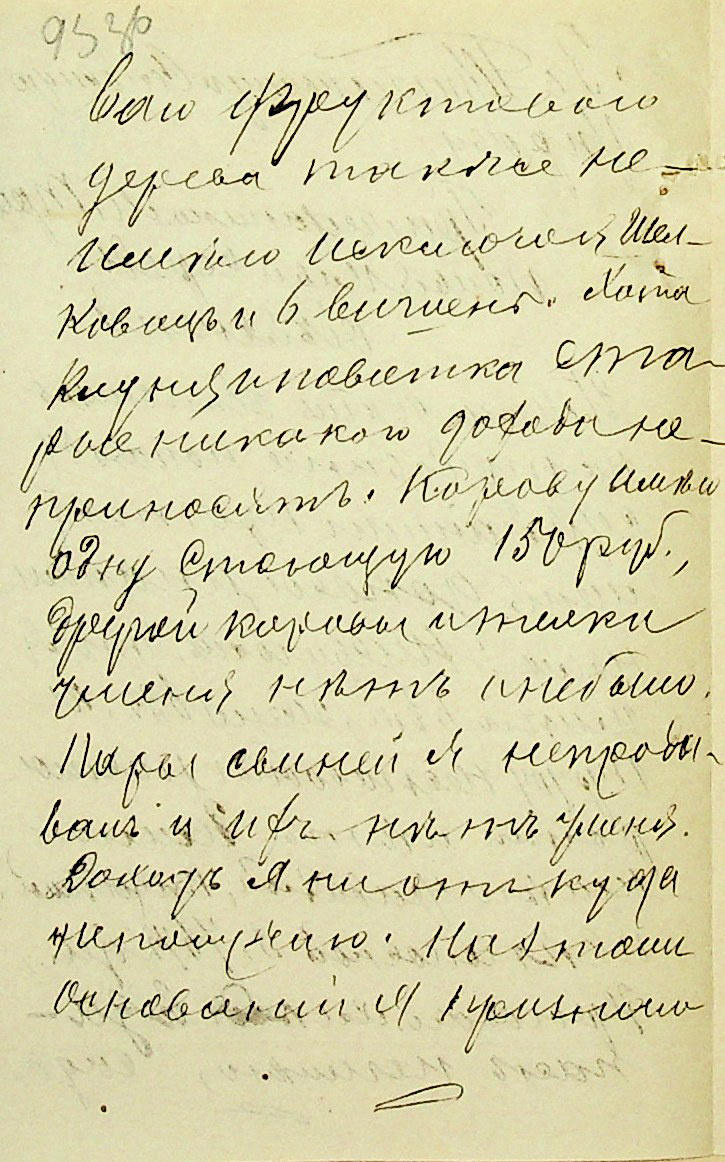 95 зр
ваго фруктоваго
дерева также не-
имѣю исключая Шел-
ковицъ и 6 вишень. Хотя
клуня и повѣтка ста-
рые никакого дохода не-
приносятъ. Корову имѣю
одну стоющую 150 руб.,
другой коровы и телки
уменя нѣтъ инебыло.
Пары свиней я непрода-
валъ и ихъ нѣтъ уменя.
Доходъ я ниоткуда
неполучаю. На этом
основании я